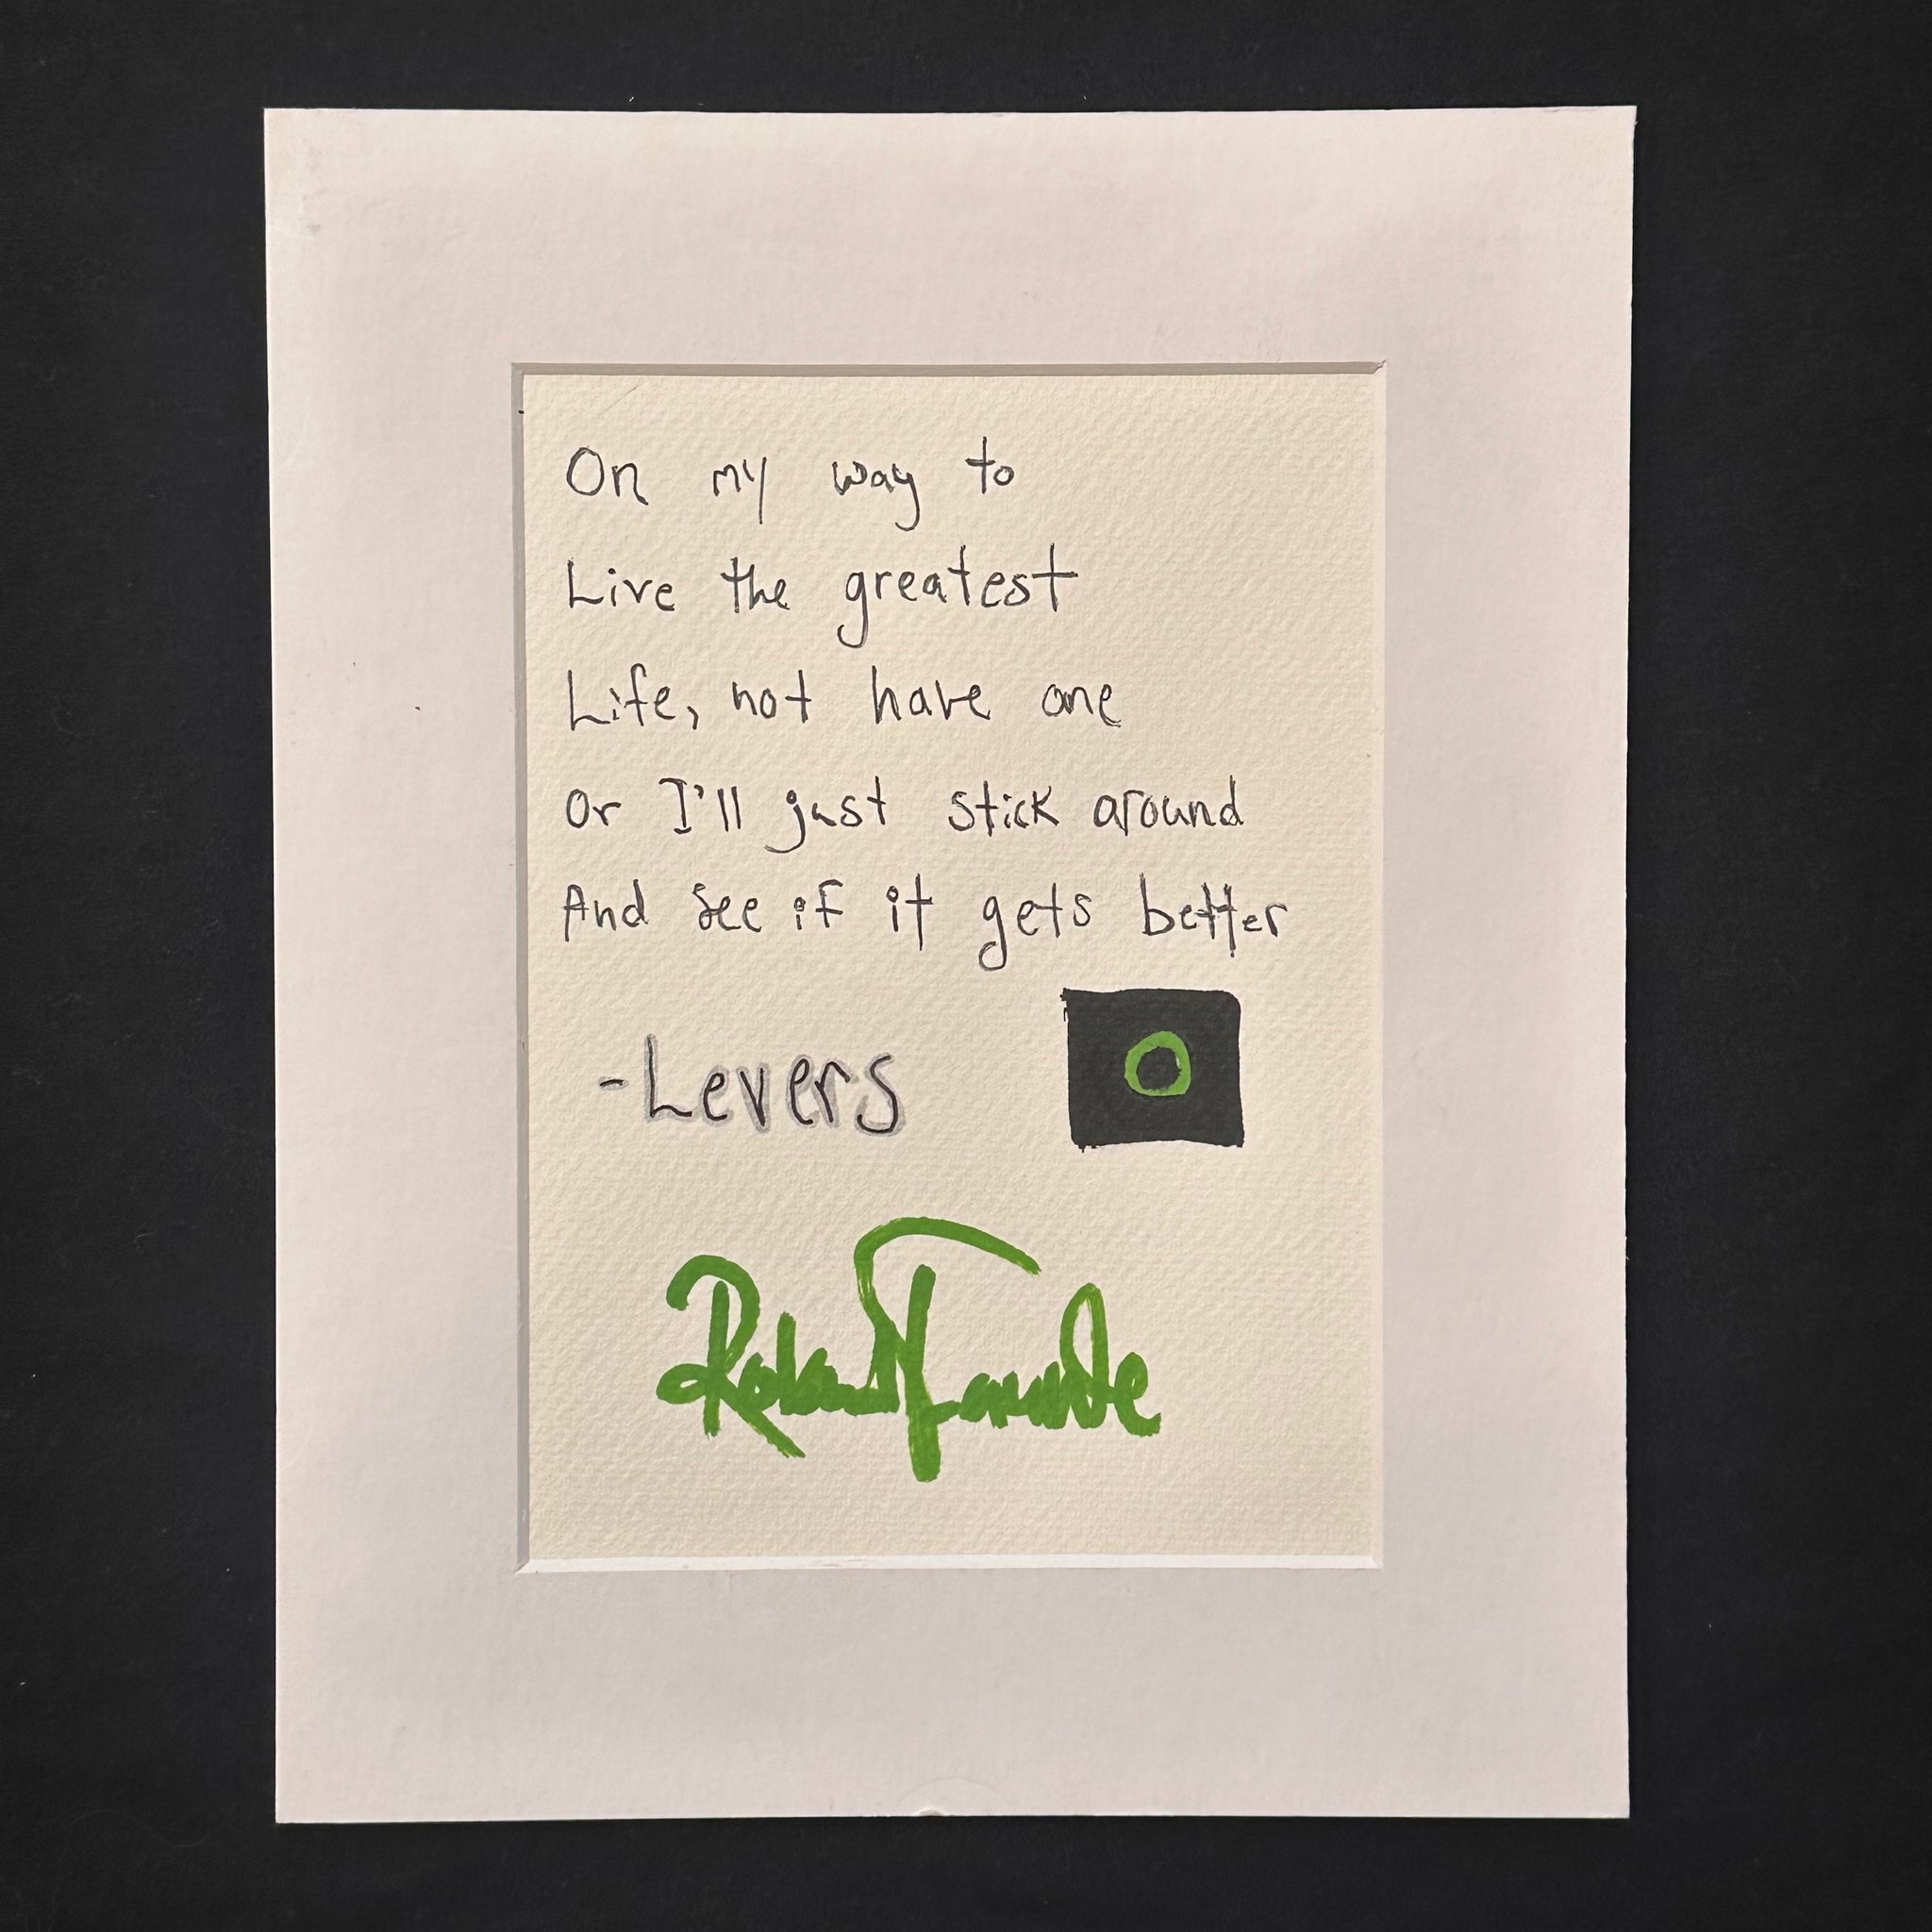 On my way to
Live the greatest
Life, not have one
Or I'll just stick around
And see if it gets better
-Levers